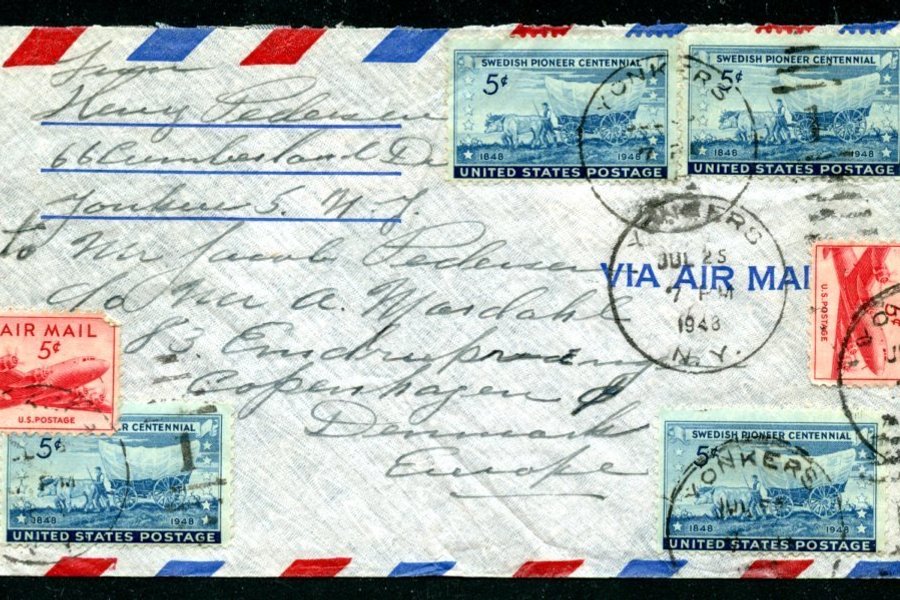 From
Henry Pedersen
66 Cumberland Dr
Yonkers 5. N.Y.
to Mr Jacob Pedersen
c/o Mr A. Mardahl
83.
Copenhagen
Denmark
Europe
SWEDISH PIONEER CENTENNIAL
5¢
1848 1948
UNITED STATES POSTAGE
SWEDISH PIONEER CENTENNIAL
5¢
1848 1948
UNITED STATES POSTAGE
YONKERS
YONKERS
JUL 25
7 PM
1948
N.Y.
VIA AIR MAI
U.S. POSTAGE
5¢
AIR MAIL
5¢
U.S. POSTAGE
CENTENNIAL
5¢
PM
1848 1948
UNITED STATES POSTAGE
SWEDISH PIONEER CENTENNIAL
5¢
1848 1948
UNITED STATES POSTAGE
YONKERS
JUL